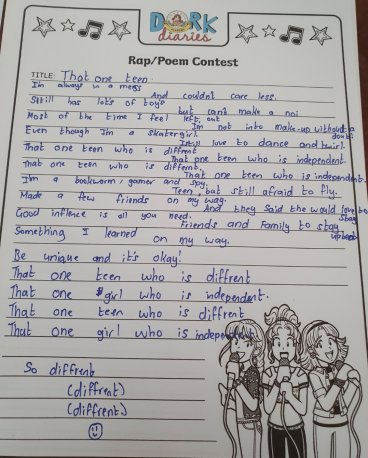 DORK
diaries
Rap/Poem Contest
TITLE: That one teen.
I'm always in a mess
And couldn't care less.
Still has lots of toys
but can't make a noi
Most of the time I feel left out
I'm not into make-up without a doubt.
Even though I'm a skatergirl
I still love to dance and twirl.
That one teen who is diffrent
That one teen who is independent.
That one teen who is diffrent.
That one teen who is independent.
I'm a bookworm, gamer and spy.
Teen but still afraid to fly.
Made a few friends on my way.
And they said the would love to stay
Good inflence is all you need.
Friends and Family to stay upbeat
Something I learned on my way.
Be unique and it's okay!
That one teen who is diffrent
That one girl who is independent.
That one teen who is diffrent
That one girl who is independent
So diffrent
(diffrent)
(diffrent)